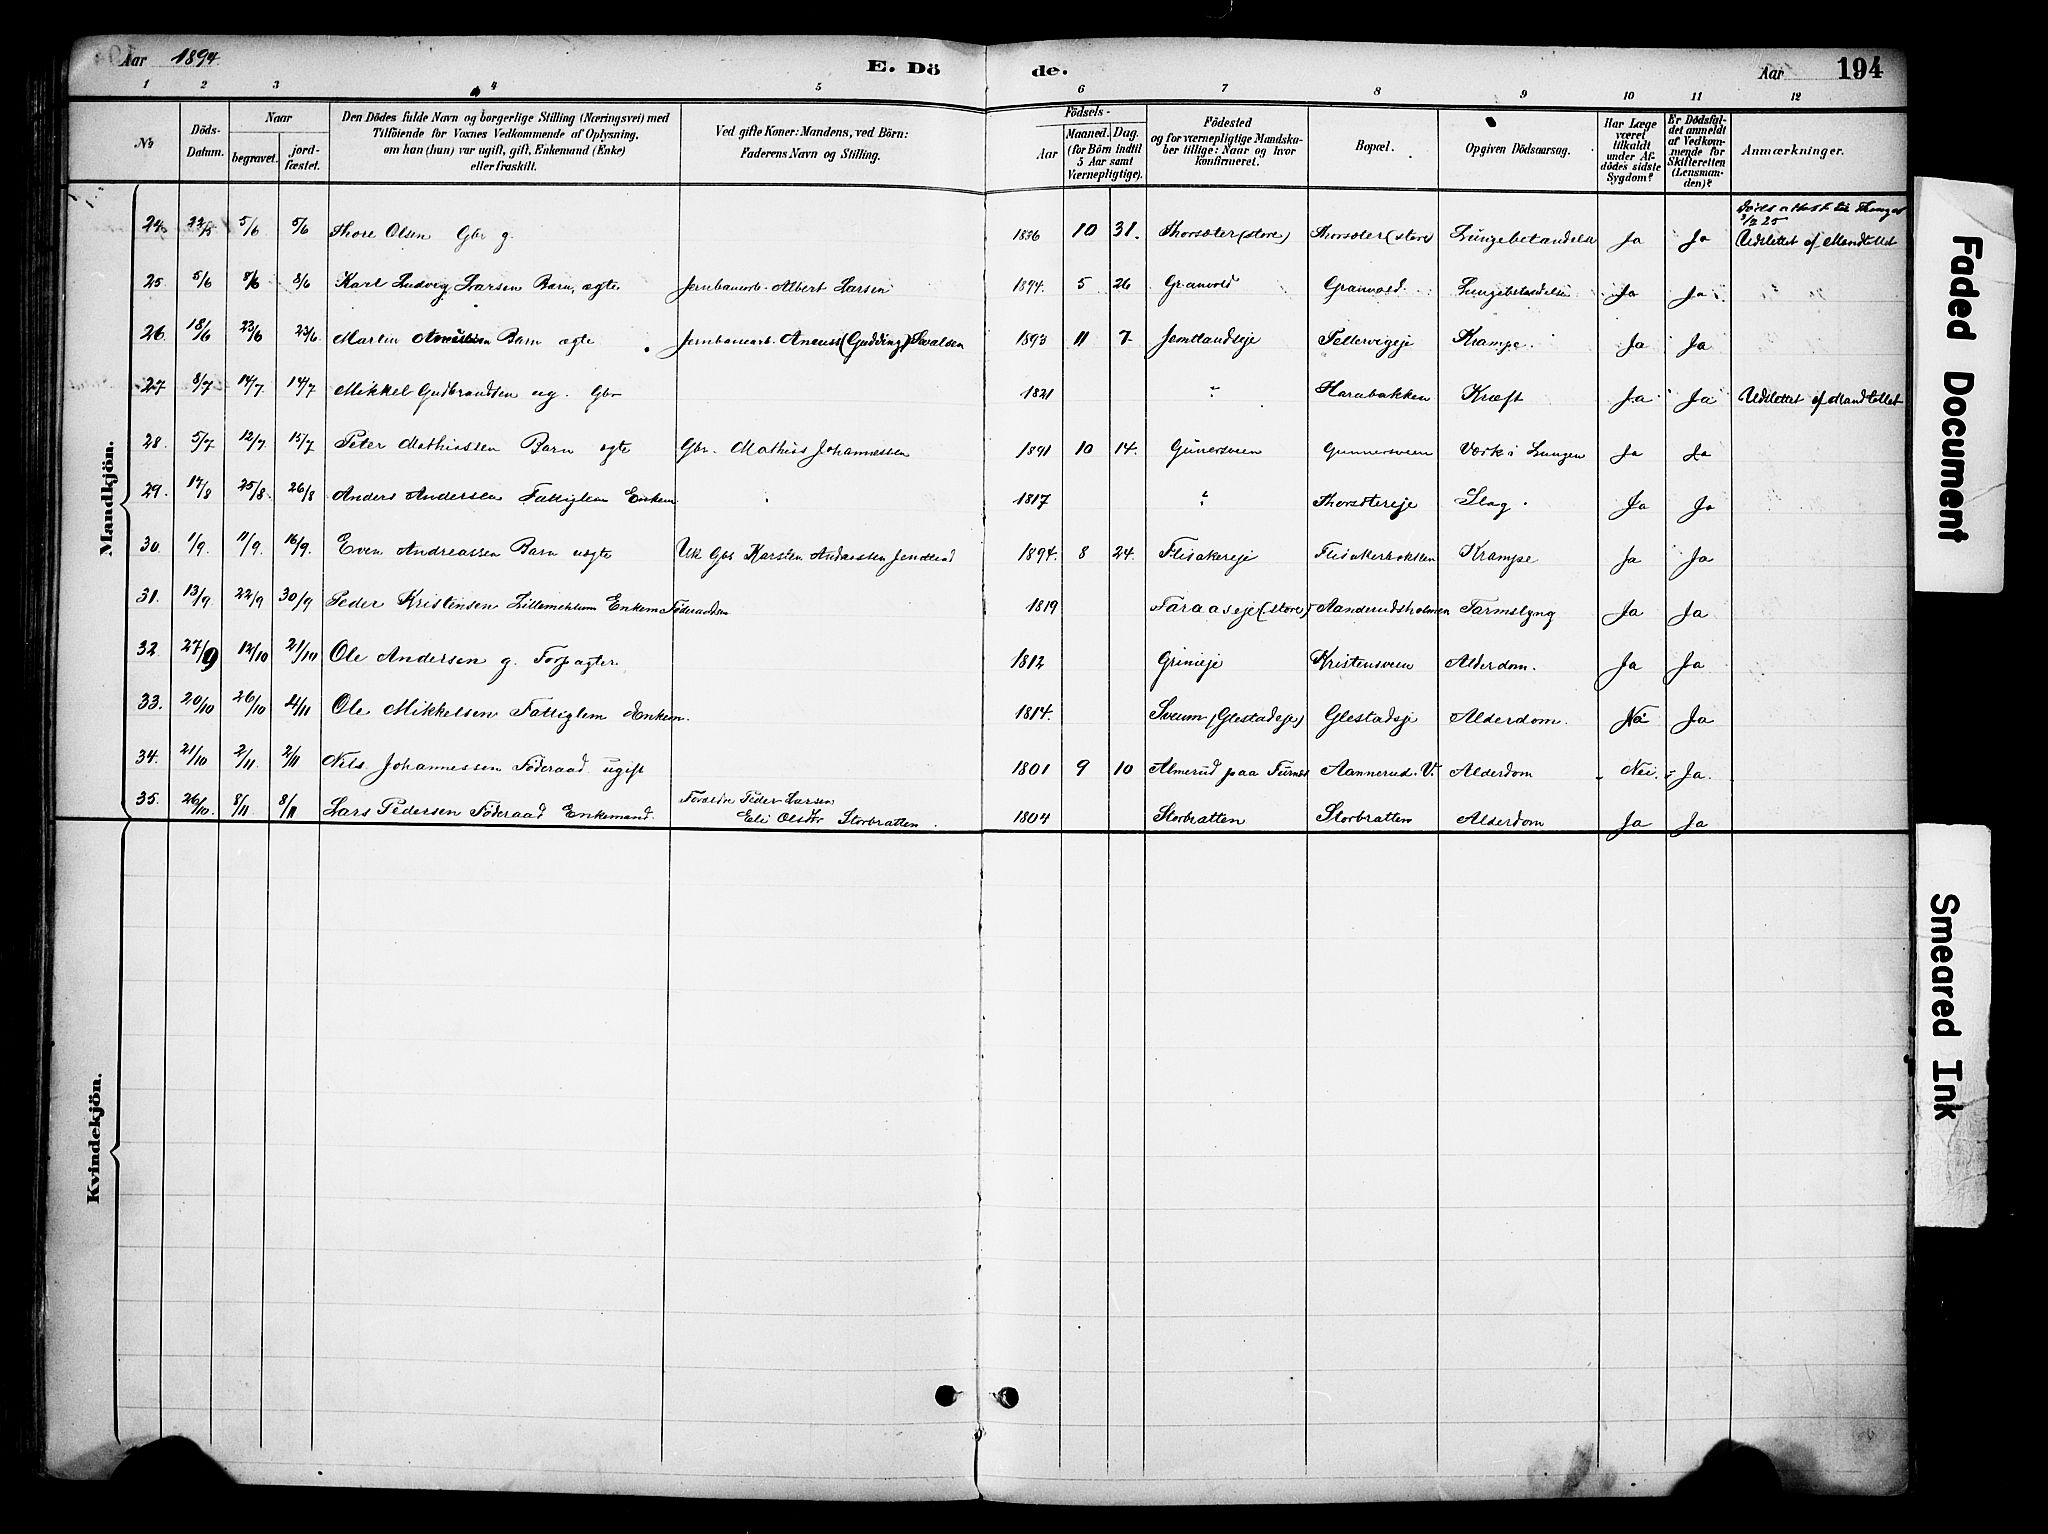 Aar 1894. E. Dö de. Aar 194
1 2 3 4 5 6 7 8 9 10 11 12
No
Döds-Datum.
Naar
begravet.
jord-fæstet.
Den Dödes fulde Navn og borgerlige Stilling (Næringsvei) med
Tilföiende for Voxnes Vedkommende af Oplysning,
om han (hun) var ugift, gift, Enkemand (Enke)
eller fraskilt.
Ved gifte Koner: Mandens, ved Börn:
Faderens Navn og Stilling.
Födsels-
Aar
Maaned. Dag.
(for Börn indtil
5 Aar samt
Værnepligtige).
Födested
og for værnepligtige Mandska-
ber tillige: Naar og hvor
konfirmeret.
Bopæl.
Opgiven Dödsaarsag.
Har Læge
været
tilkaldt
under Af-
dödes sidste
Sygdom?
Er Dödsfal-
det anmeldt
af Vedkom-
mende for
Skifteretten
(Lensman-
den)?
Anmærkninger.
Mandkjön.
24. 5/6 5/6 Thore Olsen Gbr g. 1836 10 31. Thorsæter (store) Thorsæter (store) Lungebetændelse Ja Ja Udslettet af Mandtallet
25. 5/6 8/6 8/6 Karl Ludvig Larsen Barn, ægte Jernbanearb. Albert Larsen 1894. 5 26 Granvold Granvold. Lungebetændelse Ja Ja
26. 18/6 23/6 23/6 Martin Barn ægte Jernbanearb. (Gudding) 1893 11 7. Jemtlandseje Fellervigeje Krampe. Ja Ja
27 8/7 14/7. 14/7 Mikkel Gudbrandsen ug. Gbr 1821 " Harabakken Kræft Ja Ja Udslettet af Mandtallet
28. 5/7 12/7 15/7 Peter Mathiassen Barn ægte Gbr. Mathias Johannessen 1891 10 14. Gunersveen Gunnersveen Værk i Lungen Ja Ja
29. 17/8 25/8. 26/8 Anders Andersen Fattiglem Enkem 1817 " Thorsætereje Slag. Ja Ja
30. 1/9. 11/9. 16/9. Even Andreassen Barn uægte Uk Gbs Karsten Andreassen 1894. 8 24. Flisakereje Flisakerbakken Krampe Ja Ja
31. 13/9. 22/9 30/9 Peder Kristensen Lillemehlum Enkem Föderaadsm 1819 Faraaseje (store) Aanderudsholmen Tarmslyng Ja Ja
32 27/9 12/10 21/10 Ole Andersen g. Forpagter. 1812 Grinieje Kristensveen Alderdom. Ja Ja
33. 20/10 26/10 4/11 Ole Mikkelsen Fattiglem Enkem. 1814. Sveum (Glestadeje) Glestadeje Alderdom. Nei Ja
34. 21/10 2/11. 2/11 Nils Johannessen Föderaad ugift 1801 9 10 Almerud paa Furnes Aannerud. V. Alderdom Nei. Ja.
35. 26/10. 8/11 8/11 Lars Pedersen Föderaad Enkemand. Forældre Peder Larsen
Eli Olsdtr Storbratten. 1804 Storbratten Storbratten Alderdom Ja Ja
Kvindekjön.
Faded Document
Smeared Ink